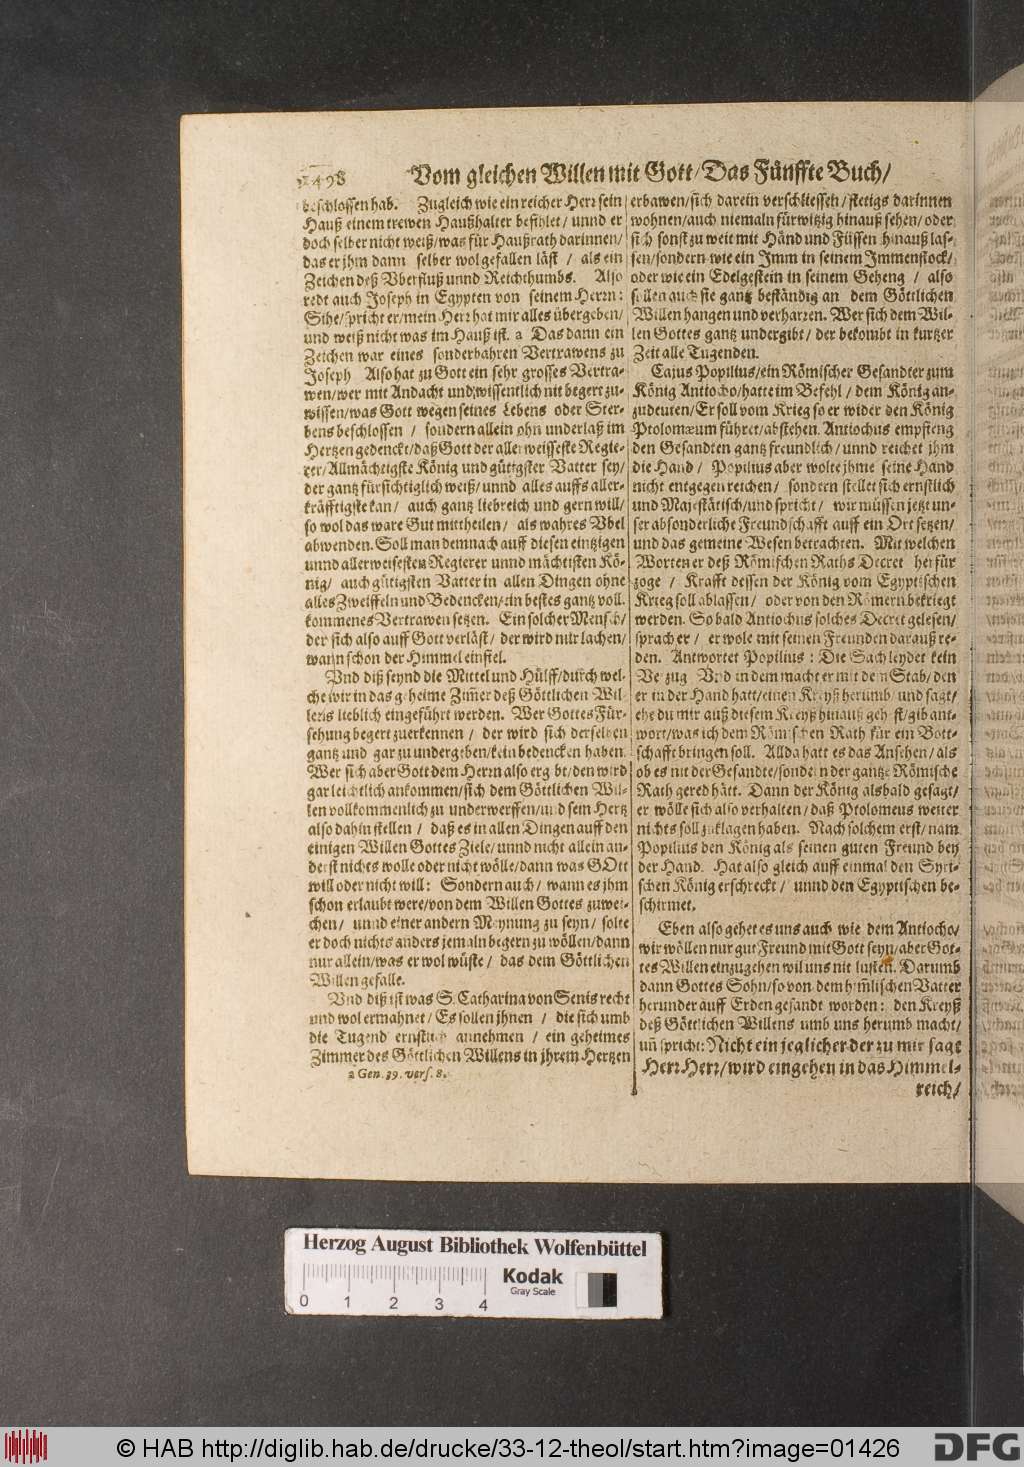 1498 Vom gleichen Willen mit Gott/ Das Fünffte Buch/
beschlossen hab. Zugleich wie ein reicher Herr sein
Hauß einem trewen Haußhalter befihlet/ unnd er
doch selber nicht weiß/ was für Haußrath darinnen/
das er jhm dann selber wolgefallen läst/ als ein
Zeichen deß Vberfluß unnd Reichthumbs. Also
redt auch Joseph in Egypten von seinem Herrn:
Sihe/ spricht er/ mein Herr hat mir alles übergeben/
und weiß nicht was im Hauß ist. a Das dann ein
Zeichen war eines sonderbahren Vertrawens zu
Joseph Also hat zu Gott ein sehr grosses Vertra-
wen/ wer mit Andacht und wissentlich nit begert zu-
wissen/ was Gott wegen seines Lebens oder Ster-
bens beschlossen / sondern allein ohn underlaß im
Hertzen gedenckt/ daß Gott der aller weisseste Regie-
rer/ Allmächtigste König und gütigster Vatter sey/
der gantz fürsichtiglich weiß/ unnd alles auffs aller-
kräfftigste kan/ auch gantz liebreich und gern will/
so wol das ware Gut mittheilen/ als wahres Vbel
abwenden. Soll man demnach auff diesen eintzigen
unnd allerweisesten Regierer unnd mächtisten Kö-
nig/ auch gütigsten Vatter in allen Dingen ohne
alles Zweiffeln und Bedencken/ ein bestes gantz voll-
kommenes Vertrawen setzen. Ein solcher Mensch/
der sich also auff Gott verläst/ der wird nur lachen/
wann schon der Himmel einfiel.
Vnd diß seynd die Mittel und Hülff/ durch wel-
che wir in das geheime Zim̃er deß Göttlichen Wil-
lens lieblich eingeführt werden. Wer Gottes Für-
sehung begert zuerkennen / der wird sich derselben
gantz und gar zu undergeben/ kein bedencken haben.
Wer sich aber Gott dem Herrn also ergibt/ den wird
gar leichtlich ankommen/ sich dem Göttlichen Wil-
len vollkommenlich zu underwerffen/ und sein Hertz
also dahin stellen / daß es in allen Dingen auff den
einigen Willen Gottes Ziele/ unnd nicht allein an-
derst nichts wolle oder nicht wölle/ dann was GOtt
will oder nicht will: Sondern auch/ wann es jhm
schon erlaubt were/ von dem Willen Gottes zuwei-
chen/ unnd einer andern Meynung zu seyn/ solte
er doch nichts anders jemaln begern zu wöllen/ dann
nur allein/ was er wol wüste/ das dem Göttlichen
Willen gefalle.
Vnd diß ist was S. Catharina von Senis recht
und wol ermahnet/ Es sollen jhnen / die sich umb
die Tugend ernstlich annehmen / ein geheimes
Zimmer des Göttlichen Willens in jhrem Hertzen
a Gen. 39. vers. 8.
erbawen/ sich darein verschliessen/ stetigs darinnen
wohnen/ auch niemaln fürwitzig hinauß sehen/ oder
sich sonst zu weit mit Händ und Füssen hinauß las-
sen/ sondern wie ein Imm in seinem Immenstock/
oder wie ein Edelgestein in seinem Geheng / also
sollen auch sie gantz beständig an dem Göttlichen
Willen hangen und verharren. Wer sich dem Wil-
len Gottes gantz undergibt/ der bekombt in kurtzer
Zeit alle Tugenden.
Cajus Popilius/ ein Römischer Gesandter zum
König Antiocho/ hatte im Befehl/ dem König an-
zudeuten/ Er soll vom Krieg so er wider den König
Ptolomæum führet/ abstehen. Antiochus empfieng
den Gesandten gantz freundlich/ unnd reichet jhm
die Hand / Popilius aber wolte jhme seine Hand
nicht entgegen reichen/ sondern stellet sich ernstlich
und Majestätisch/ und spricht/ wir müssen jetzt un-
ser absonderliche Freundschafft auff ein Ort setzen/
und das gemeine Wesen betrachten. Mit welchen
Worten er deß Römischen Raths Decret herfür
zoge / Krafft dessen der König vom Egyptischen
Krieg soll ablassen/ oder von den Römern bekriegt
werden. So bald Antiochus solches Decret gelesen/
sprach er/ er wole mit seinen Freunden darauß re-
den. Antwortet Popilius: Die Sach leydet kein
Verzug Vnd in dem macht er mit dem Stab/ den
er in der Hand hatt/ einen Kreyß herumb und sagt/
ehe du mir auß diesem Kreyß hinauß gehest/ gib ant-
wort/ was ich dem Römischen Rath für ein Bott-
schafft bringen soll. Allda hatt es das Ansehen/ als
ob es nit der Gesandte/ sondern der gantze Römische
Rath gered hätt. Dann der König alsbald gesagt/
er wölle sich also verhalten/ daß Ptolomeus weiter
nichts soll zuklagen haben. Nach solchem erst/ nam
Popilius den König als seinen guten Freund bey
der Hand. Hat also gleich auff einmal den Syri-
schen König erschreckt/ unnd den Egyptischen be-
schirmet.
Eben also gehet es uns auch wie dem Antiocho/
wir wöllen nur gut Freund mit Gott seyn/ aber Got-
tes Willen einzugehen wil uns nit lusten. Darumb
dann Gottes Sohn/ so von dem him̃lischen Vatter
herunder auff Erden gesandt worden: den Kreyß
deß Göttlichen Willens umb uns herumb macht/
uñ spricht: Nicht ein jeglicher der zu mir sagt
Herr Herr/ wird eingehen in das Himmel-
reich/
Herzog August Bibliothek Wolfenbüttel
Kodak
Gray Scale
0 1 2 3 4
© HAB http://diglib.hab.de/drucke/33-12-theol/start.htm?image=01426
DFG